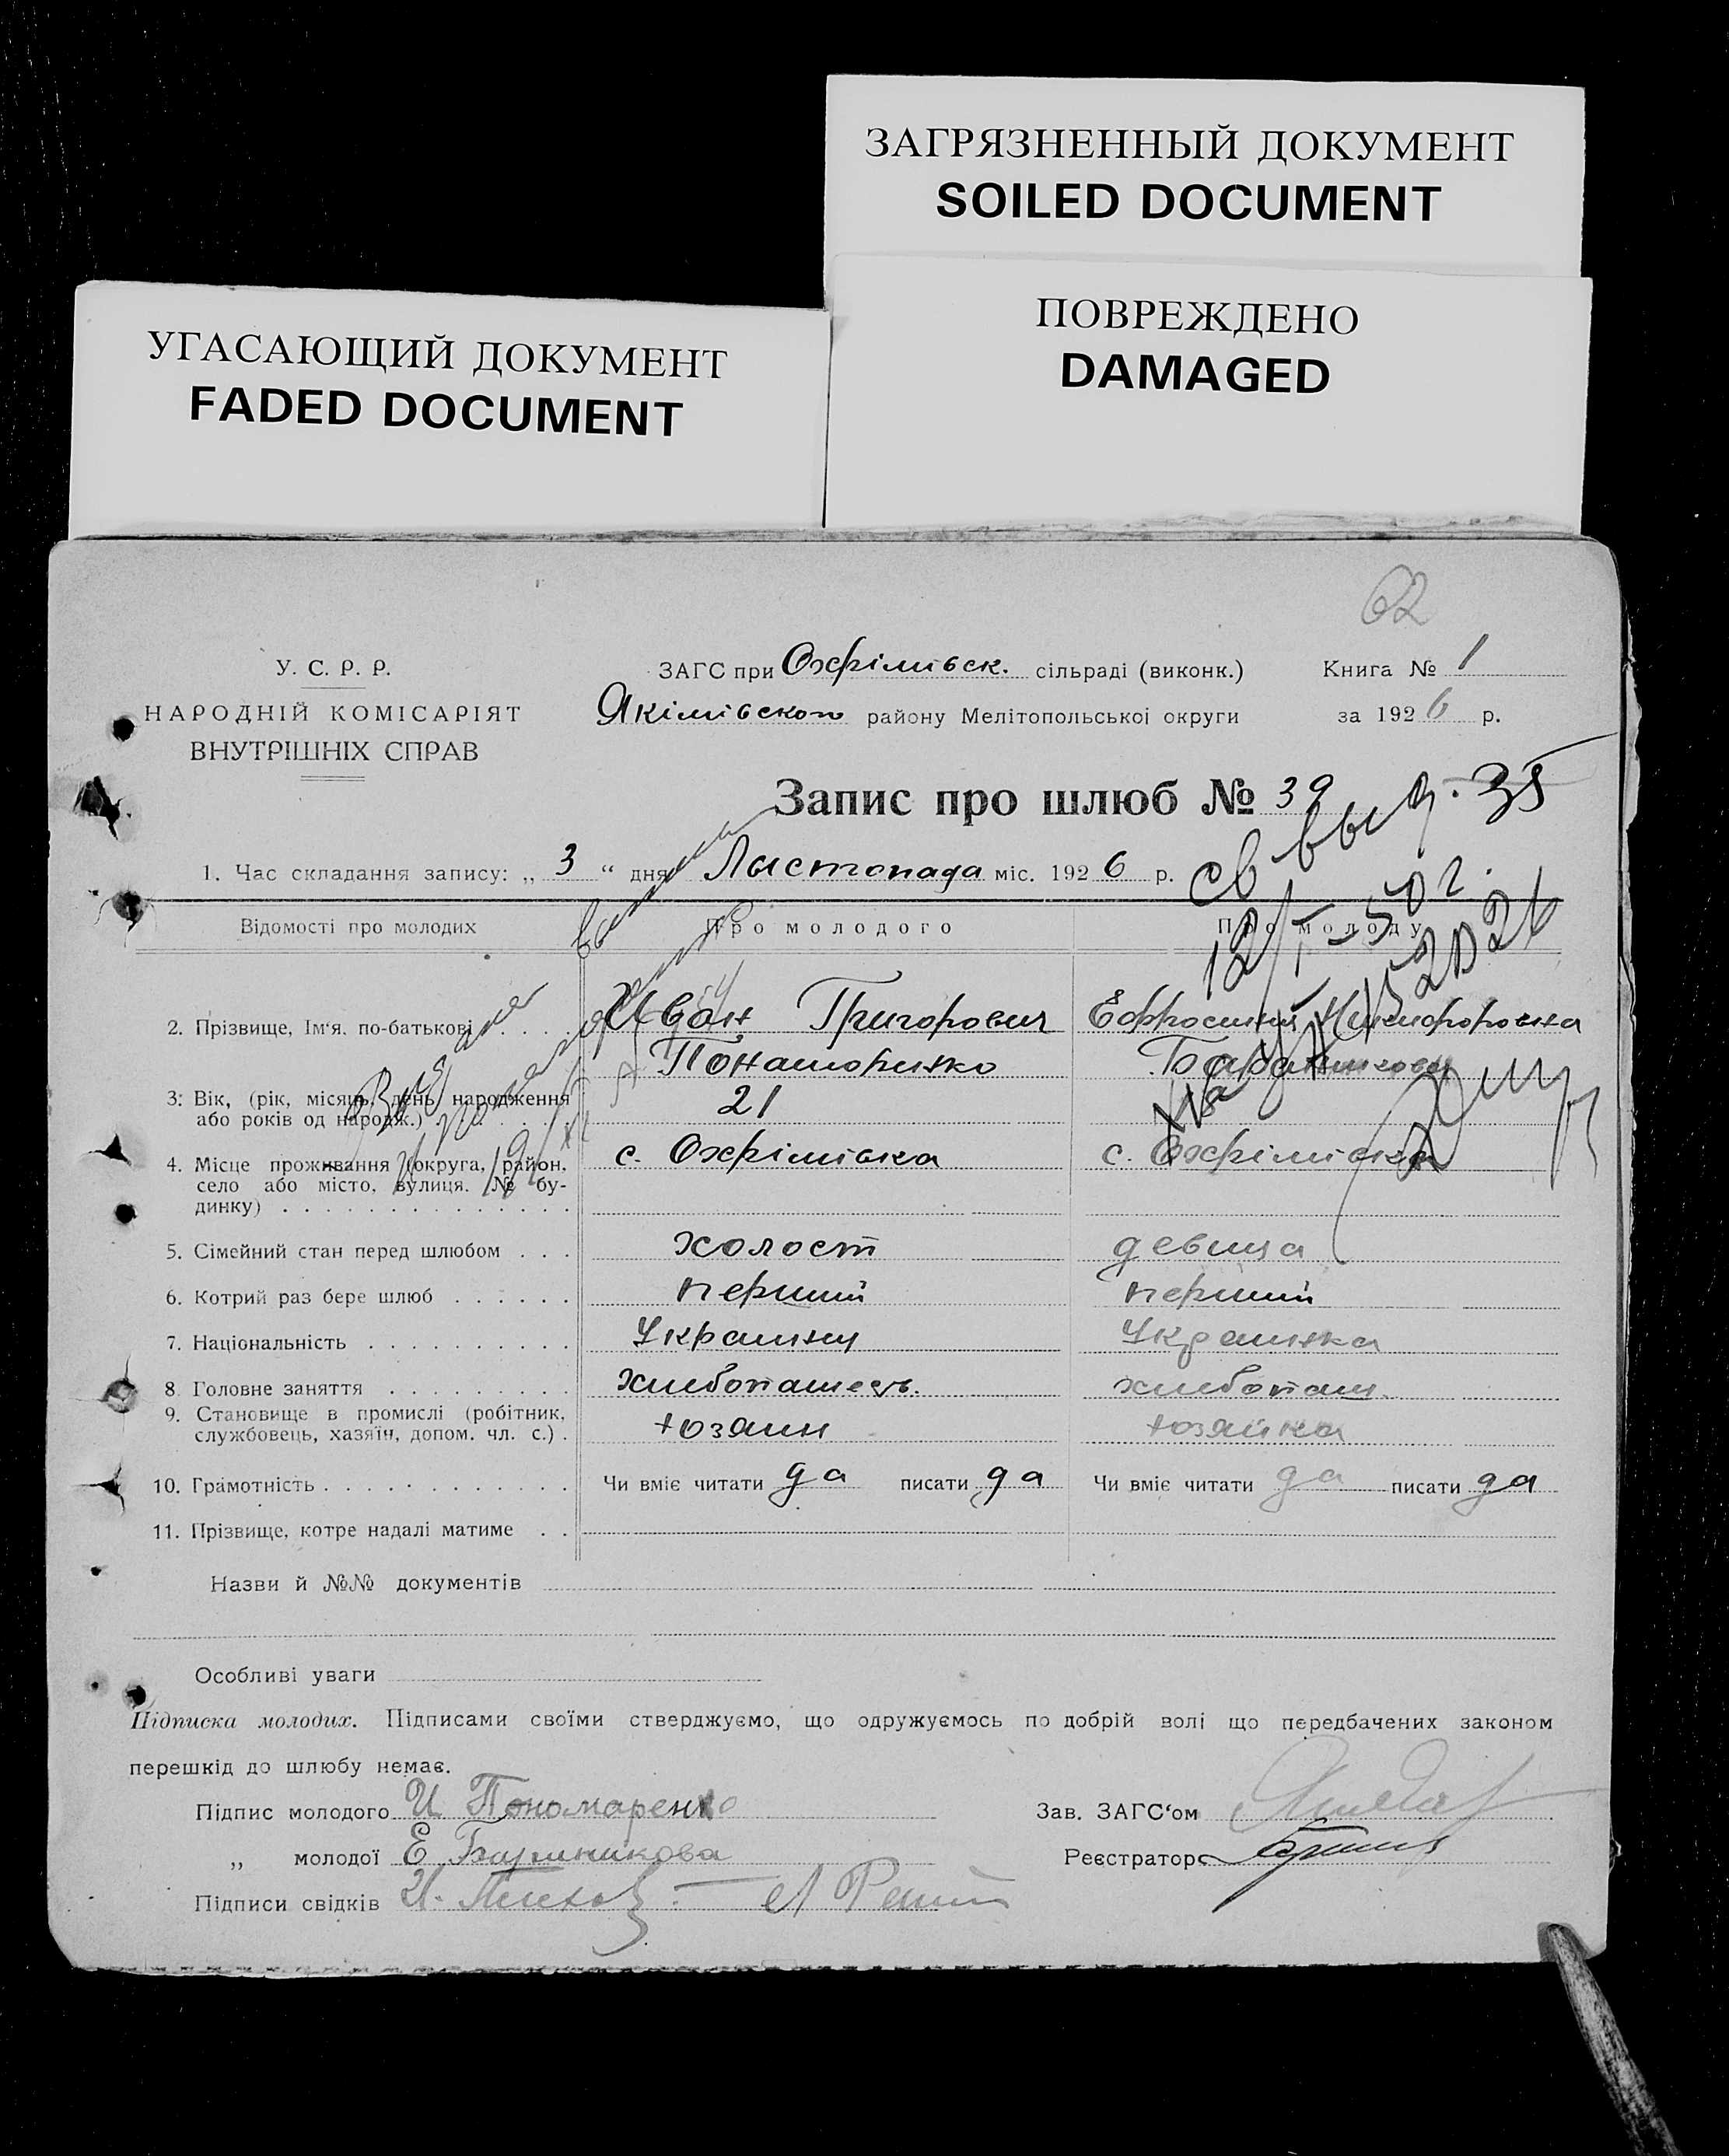 ЗАГРЯЗНЕННЫЙ ДОКУМЕНТ
SOILED DOCUMENT
УГАСАЮЩИЙ ДОКУМЕНТ
FADED DOCUMENT
ПОВРЕЖДЕНО
DAMAGED
62
У. С. Р. Р.
НАРОДНІЙ КОМІСАРІЯТ
ВНУТРІШНІХ СПРАВ
ЗАГС при Охрімівск. сільраді (виконк.)
Якімівского району Мелітопольської округи
Книга № 1
за 1926 р.
Запис про шлюб № 39
1. Час складання запису: „ 3 “ дня Листопада міс. 1926 р.
св выд. 
12/I-50г.
Відомості про молодих Про молодого Про молоду
2. Прізвище, Ім‘я, по-батькові Иван Григорович Ефросиния Никифоровна
Понамаринко
3. Вік, (рік, місяць, день народження
або років од народж.) 21
4. Місце проживання (округа, район, с. Охрімівка с. Охрімівка
село або місто, вулиця. № бу-
динку)
5. Сімейний стан перед шлюбом холост девица
6. Котрий раз бере шлюб перший перший
7. Національність Украинец Украинка
8. Головне заняття хлебопашець. хлебопаш.
9. Становище в промислі (робітник,
службовець, хазяїн, допом. чл. с.) хозяин хозяйка
10. Грамотність Чи вміє читати да писати да Чи вміє читати да писати да
11. Прізвище, котре надалі матиме
Назви й №№ документів
Особливі уваги
Підписка молодих. Підписами своїми стверджуємо, що одружуємось по добрій волі що передбачених законом
перешкід до шлюбу немає.
Підпис молодого И Пономаренко Зав. ЗАГС‘ом
„ молодої Е Реєстратор
Підписи свідків